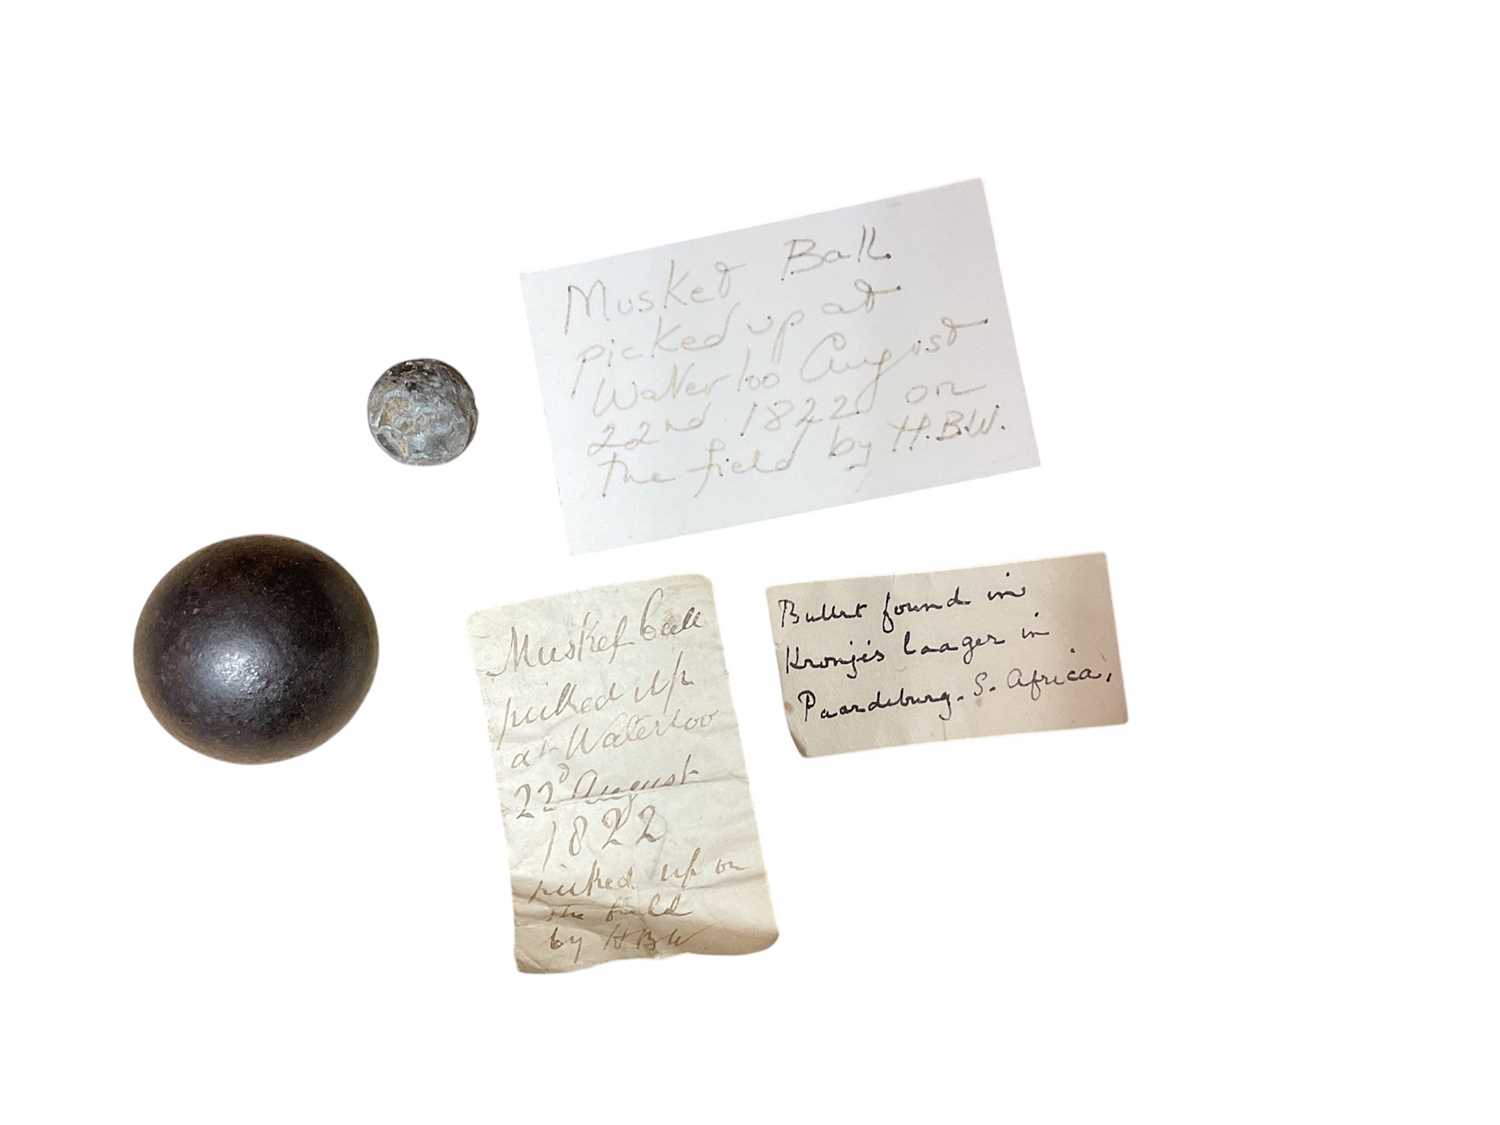 Musket Ball
picked up at
Waterloo August
22nd 1822 on
the field by H.B.W.
Musket ball
picked up
at Waterloo
22d August
1822
picked up on
the field
by HBW
Bullet found in
Kronjés laager in
Paardeburg. S. Africa.